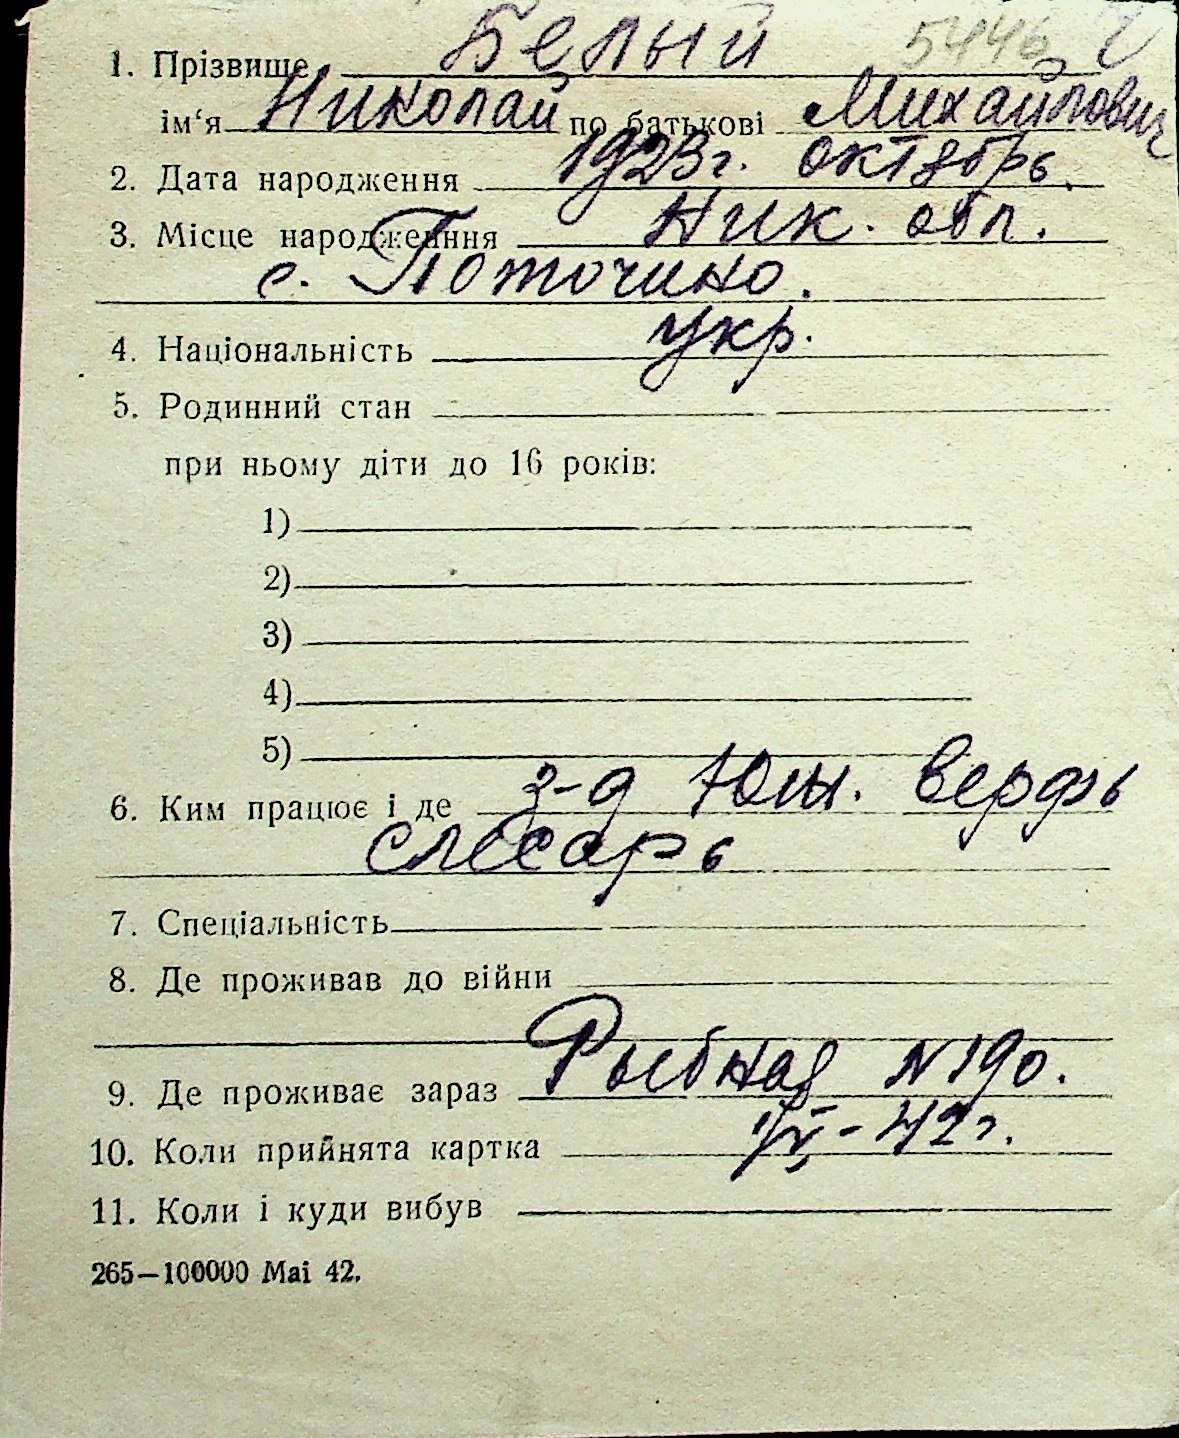 1. Прізвище Белый 5446
ім‘я Николай по батькові Михайлович
2. Дата народження 1923г. октябрь.
3. Місце народження Ник. обл.
с. Поточино.
4. Національність укр.
5. Родинний стан
при ньому діти до 16 років:
1)
2)
3)
4)
5)
6. Ким працює і де з-д Южн. верфь
слесарь
7. Спеціальність
8. Де проживав до війни
9. Де проживає зараз Рыбная N 190.
10. Коли прийнята картка -42г.
11. Коли і куди вибув
265—100000 Mai 42.